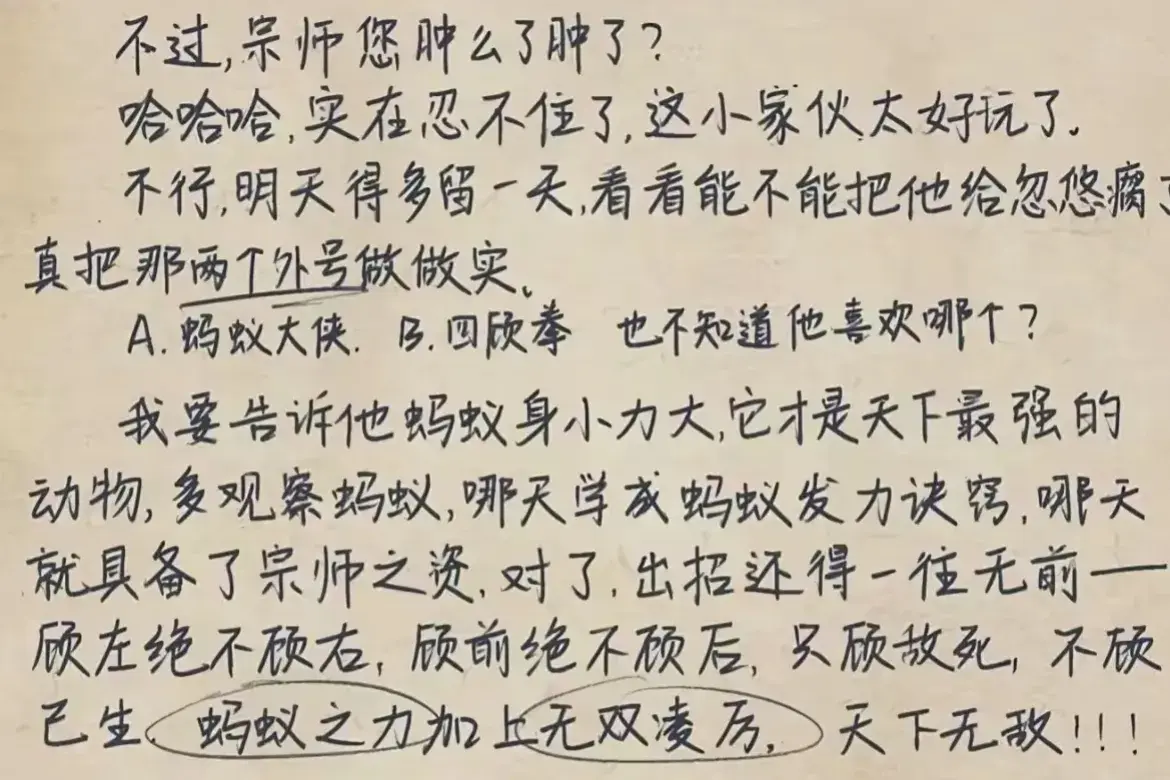 不过,宗师您肿么了肿了?
哈哈哈,实在忍不住了,这小家伙太好玩了.
不行,明天得多留一天,看看能不能把他给忽悠瘸
真把那两个外号做做实、
A.蚂蚁大侠. B.四顾拳 也不知道他喜欢哪个?
我要告诉他蚂蚁身小力大,它才是天下最强的
动物,多观察蚂蚁,哪天学成蚂蚁发力诀窍,哪天
就具备了宗师之资.对了,出招还得一往无前——
顾左绝不顾右,顾前绝不顾后,只顾敌死,不顾
己生.蚂蚁之力加上无双凌厉.天下无敌!!!